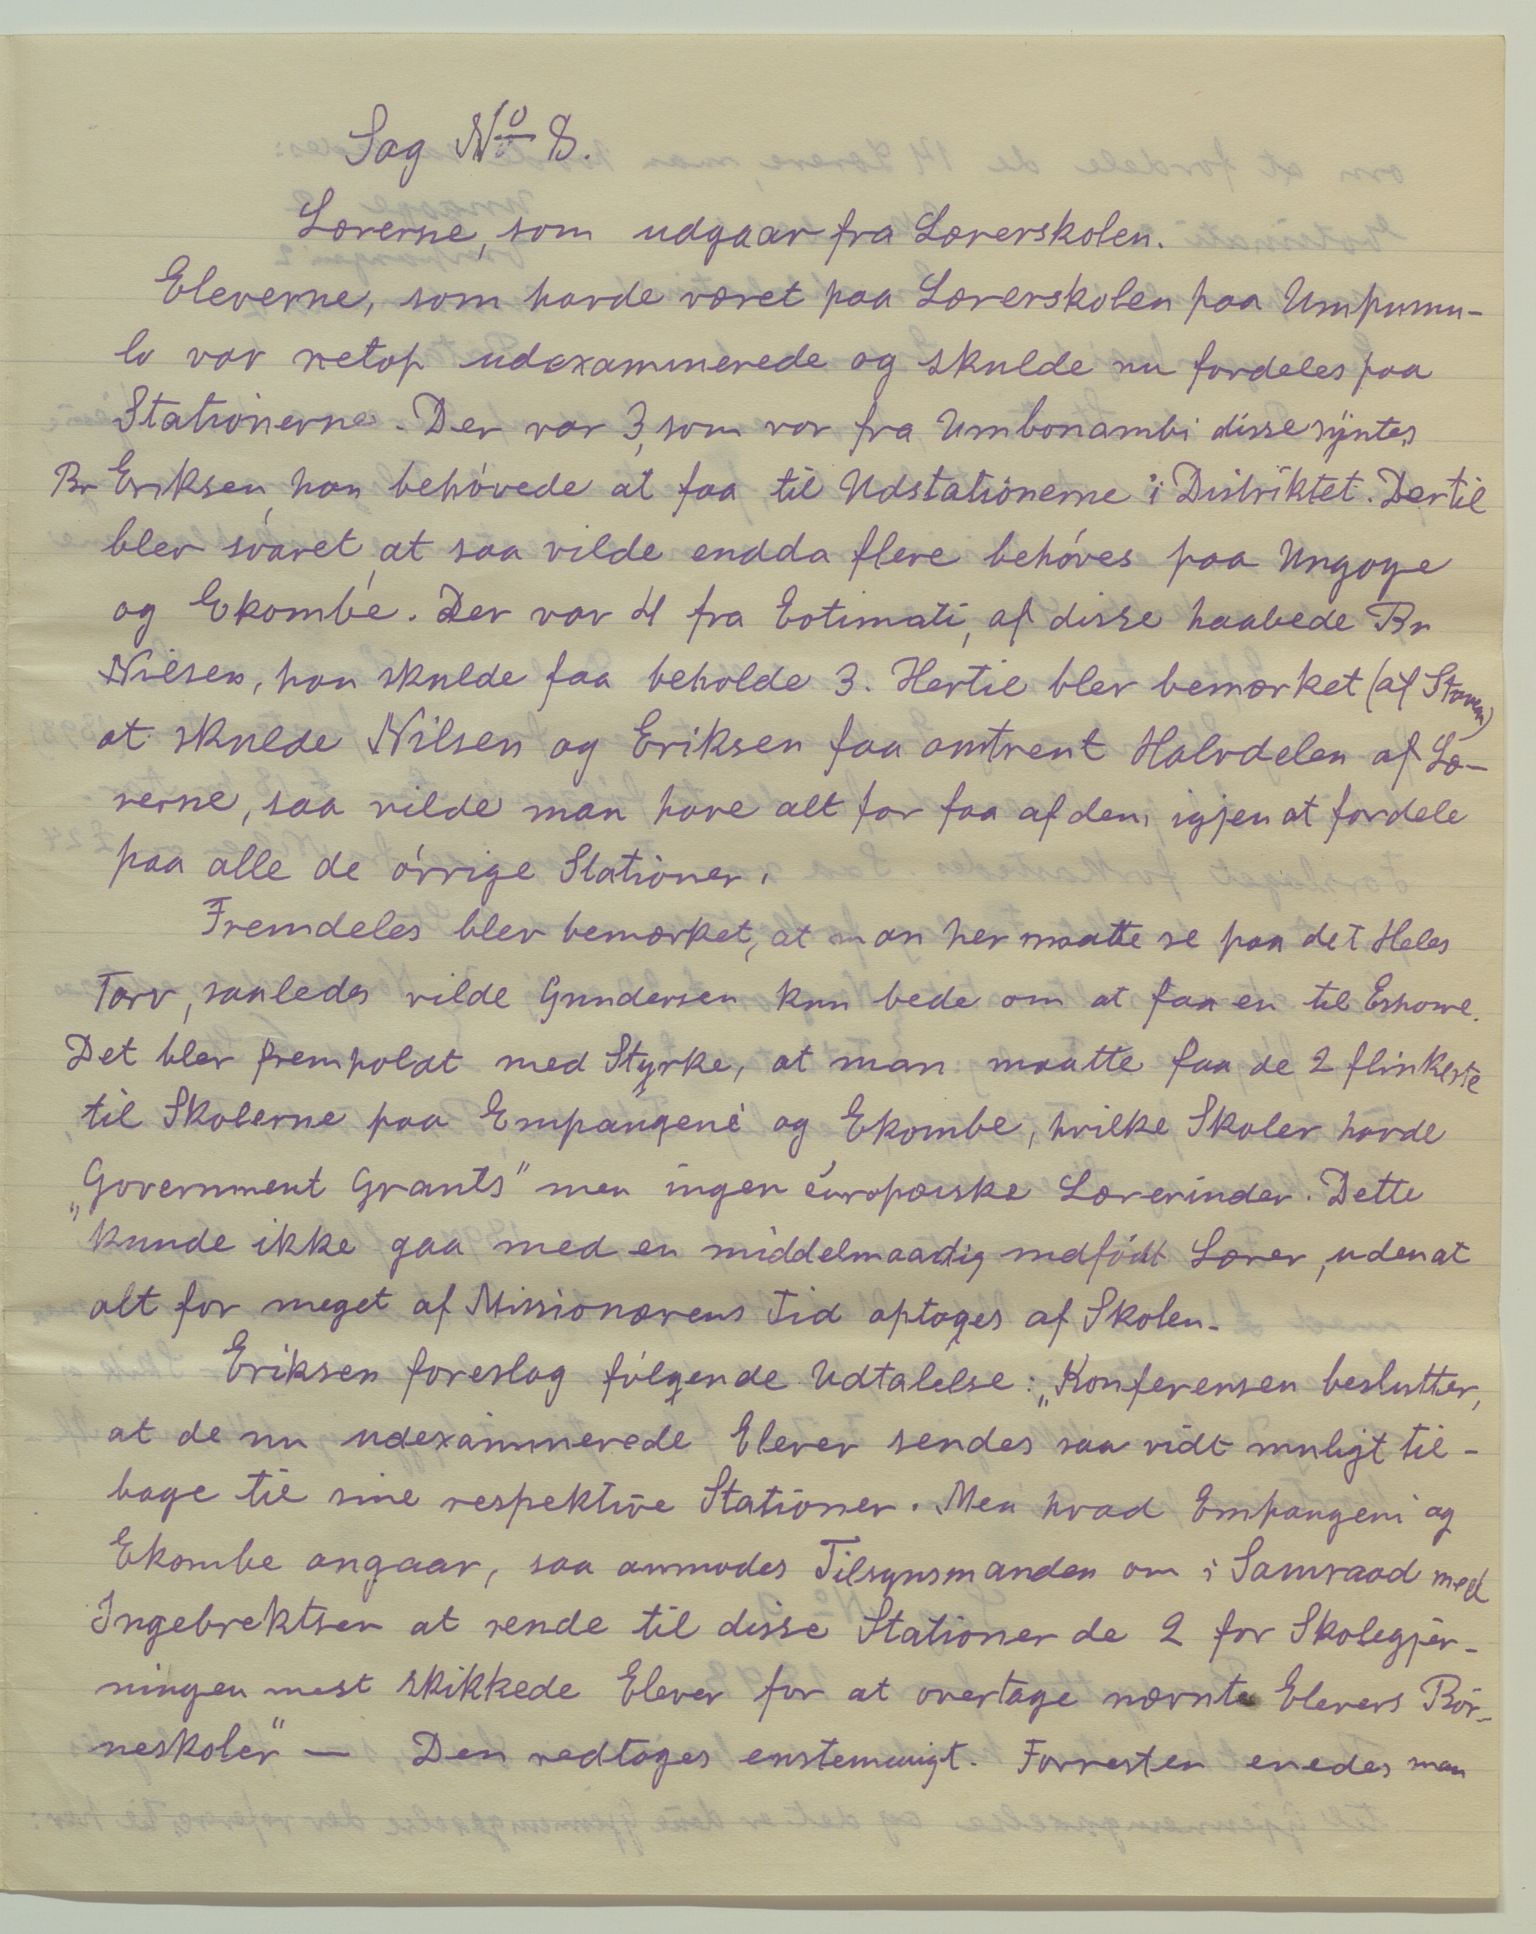 Sag No 8.
Lærerne, som udgaar fra Lærerskolen.
Eleverne, som havde været paa Lærerskolen paa Umpumu-
lo var netop udexaminerede og skulde nu fordeles paa
Stationerne. Der var 3, som var fra Umbonambi disse syntes
Br Eriksen, han behøvede at faa til Udstationerne i Distriktet. Dertil
blev svaret, at saa vilde endda flere behøves paa Ungoye
og Ekombe. Der var 4 fra Eotimati, af disse haabede Br
Nilsen, han skulde faa beholde 3. Hertil blev bemærket (af Stavem)
at skulde Nilsen og Eriksen faa omtrent Halvdelen af Læ-
rerne, saa vilde man have alt for faa af dem igjen at fordele
paa alle de øvrige Stationer.
Fremdeles blev bemærket, at man her maatte se paa det Heles
Tarv, saaledes vilde Gundersen kun bede om at faa en til Eshowe.
Det blev fremholdt med Styrke, at man maatte faa de 2 flinkeste
til Skolerne paa Empangeni og Ekombe, hvilke Skoler havde
"Government Grants" men ingen europæiske Lærerinder. Dette
kunde ikke gaa med en middelmaadig indfødt Lærer, uden at
alt for meget af Missionærens Tid optages af Skolen.
Eriksen foreslog følgende Udtalelse: "Konferensen beslutter,
at de nu udexaminerede Elever sendes saa vidt muligt til-
bage til sine respektive Stationer. Men hvad Empangeni og
Ekombe angaar, saa anmodes Tilsynsmanden om i Samraad med
Ingebrektsen at sende til disse Stationer de 2 for Skolegjer-
ningen mest skikkede Elever for at overtage nævnte Elevers Bør-
neskoler" — Den vedtages enstemmigt. Forresten enedes man